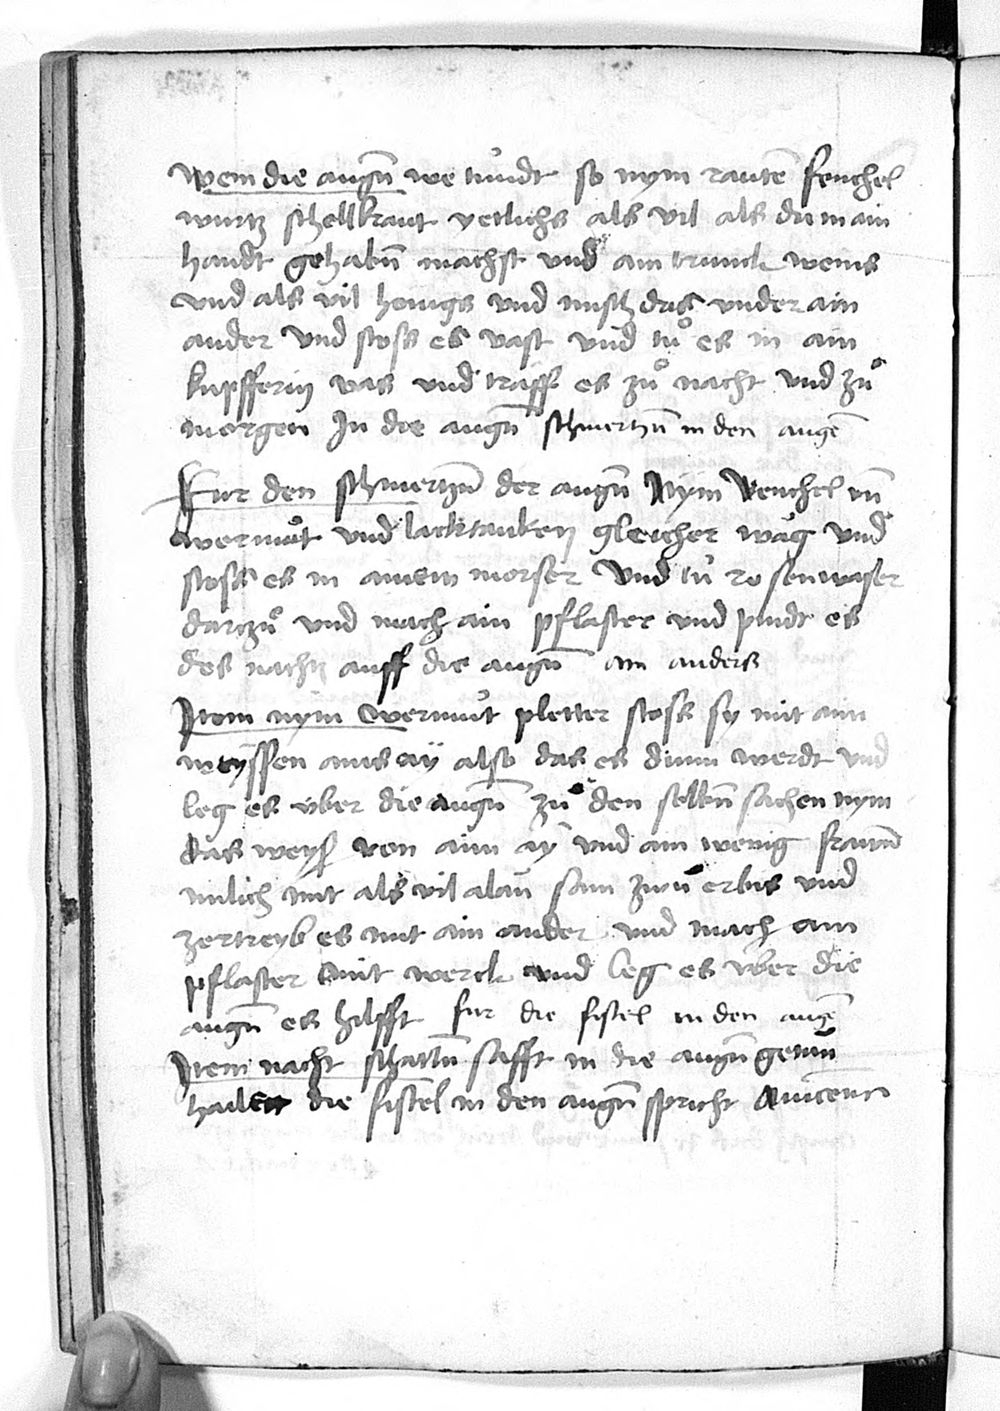 Wem die augn̄ we tuͦndt so nym rautē fenchel
wurtz schellkraut yetlichs als vil als du in ain
handt gehabn̄ machst vnd ain trunck weins
vnd als vil honigs vnd misch das vnder ain
ander vnd stoss es vast vnd tuͦ es in ain
kupfferin vas vnd träff es zuͦ nacht vnd zuͦ
morgen In die augn̄ schmertzn̄ in den augē
Fur den schmertzn̄ der augn̄ Nym Venchel vn̄
wermuͦt vnd gleicher wäg vnd
stoss es in ainem morser vnd tuͦ rosenwaser
darzuͦ vnd mach ain pflaster vnd pindt es
des nachtz auff die augn̄ ain anders
Item nym wermuͦt pletter stoss sy mit aim
weyssen ains ay also das es dinn werdt vnd
leg es vber die augn̄ zuͦ den selbn̄ sachen nym
das weyss von aim ay vnd ain wenig frawn̄
milich mit als vil alaun sam zwu erbis vnd
zertreyb es mit ain ander vnd mach ain
pflaster mit werck vnd leg es vber die
augn̄ es hilfft fur die fistel in den augē
Item nacht schattn̄ safft in die augn̄ getan̄
hailett die fistel in den augn̄ spricht Auicena